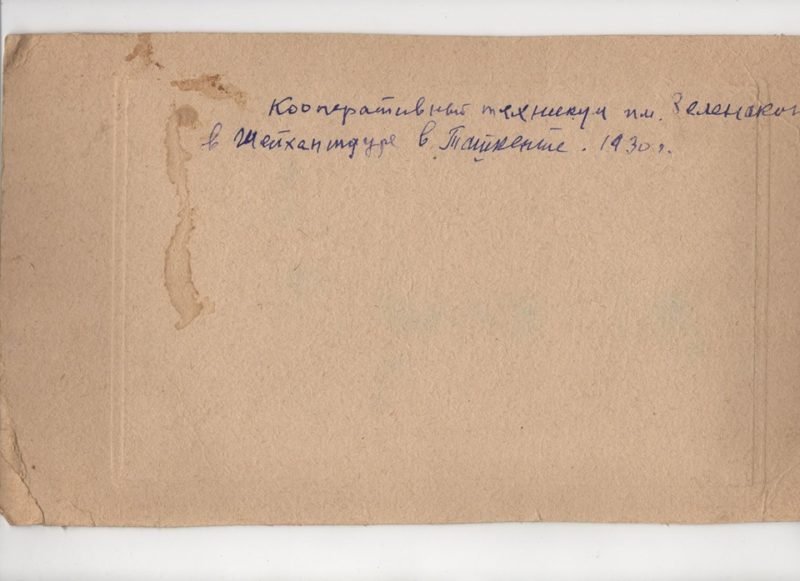 Кооперативный техникум им. Зеленско
в Шейхантауре в Ташкенте. 1930 г.